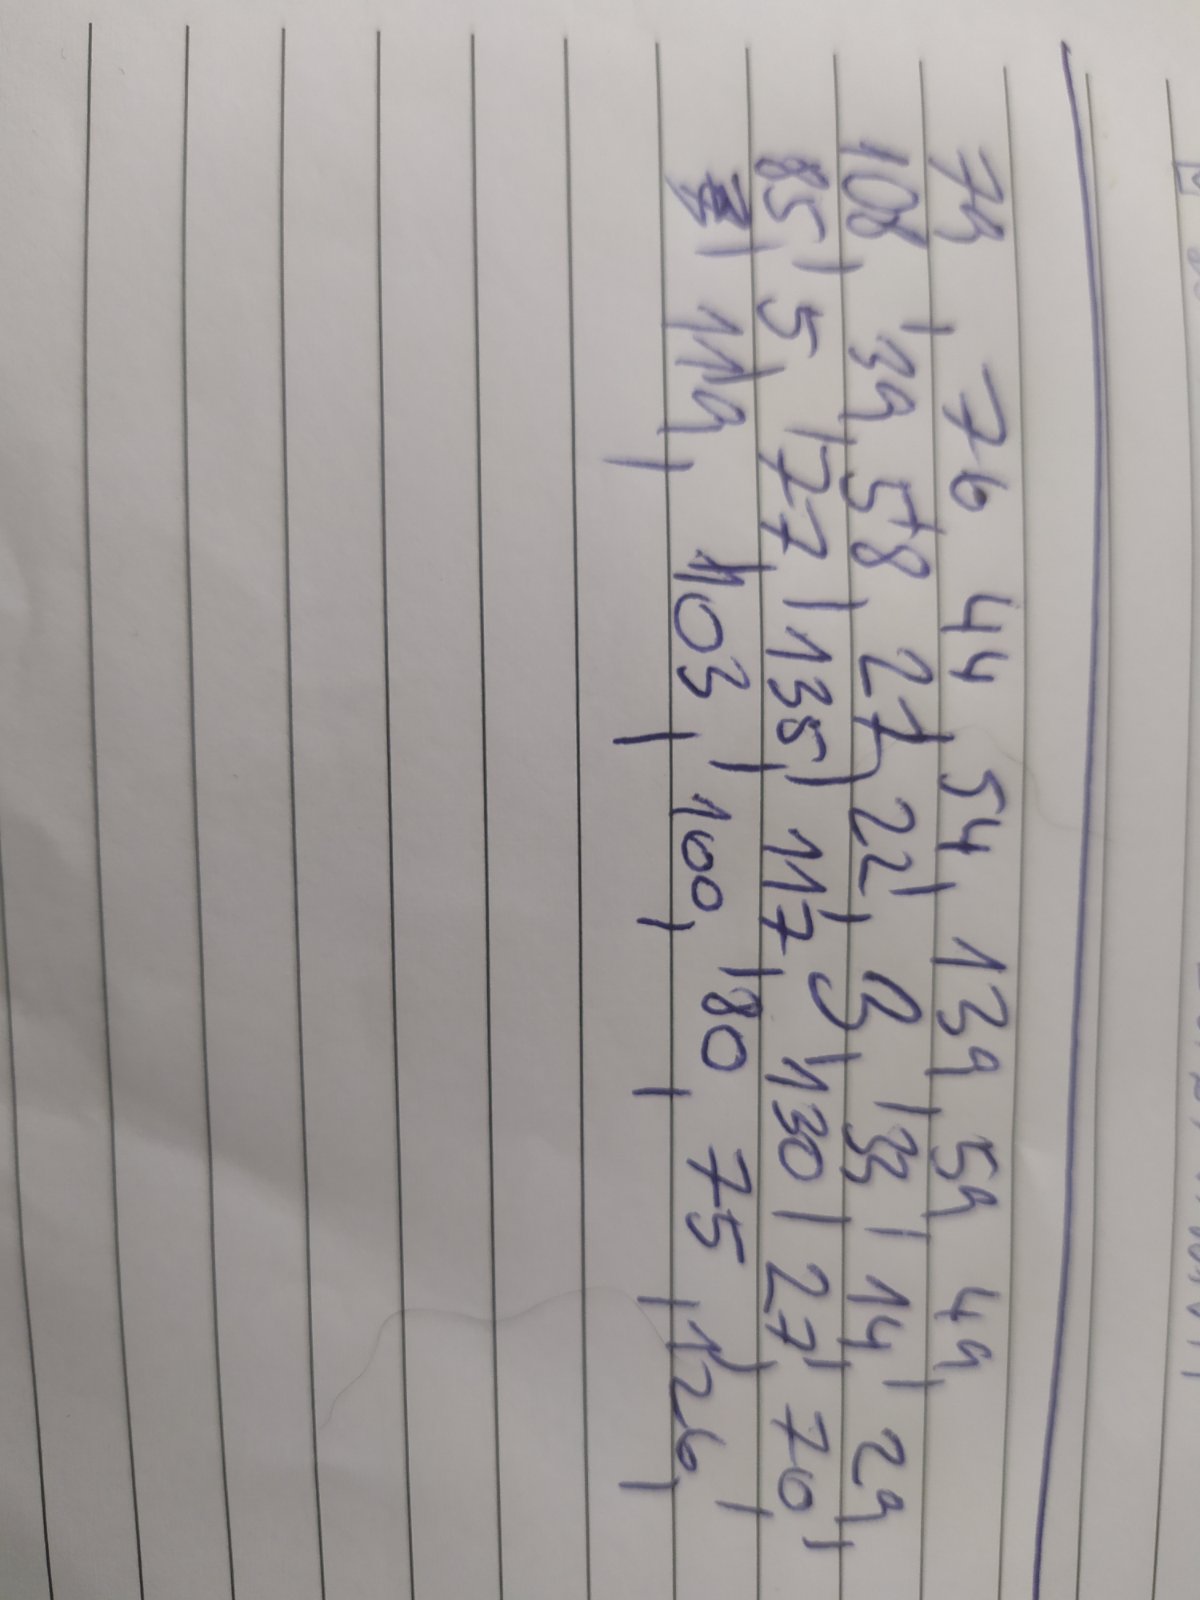 79, 76 44, 54, 139, 59, 49,
108, 39, 58, 27, 22, 8, 33, 14, 29,
85, 5, 77, 135, 117, 130, 27, 70,
119, 103, 100, 80, 75, 126,